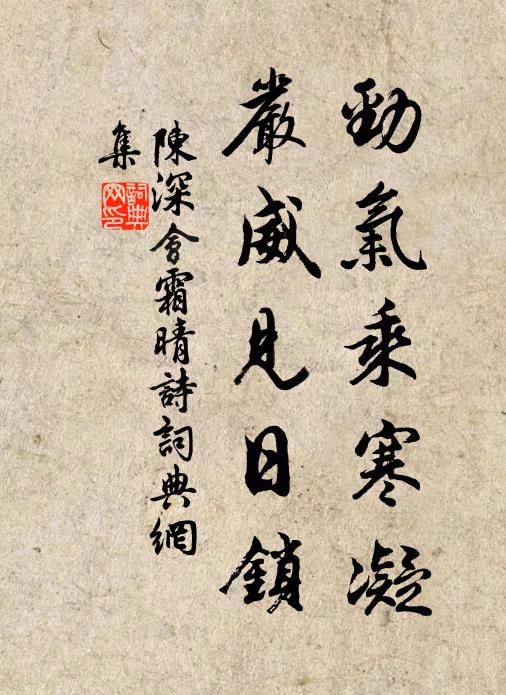 勁氣乘寒凝
嚴威見日鎖
陳深會霜晴詩詞典網
集
詞典網印